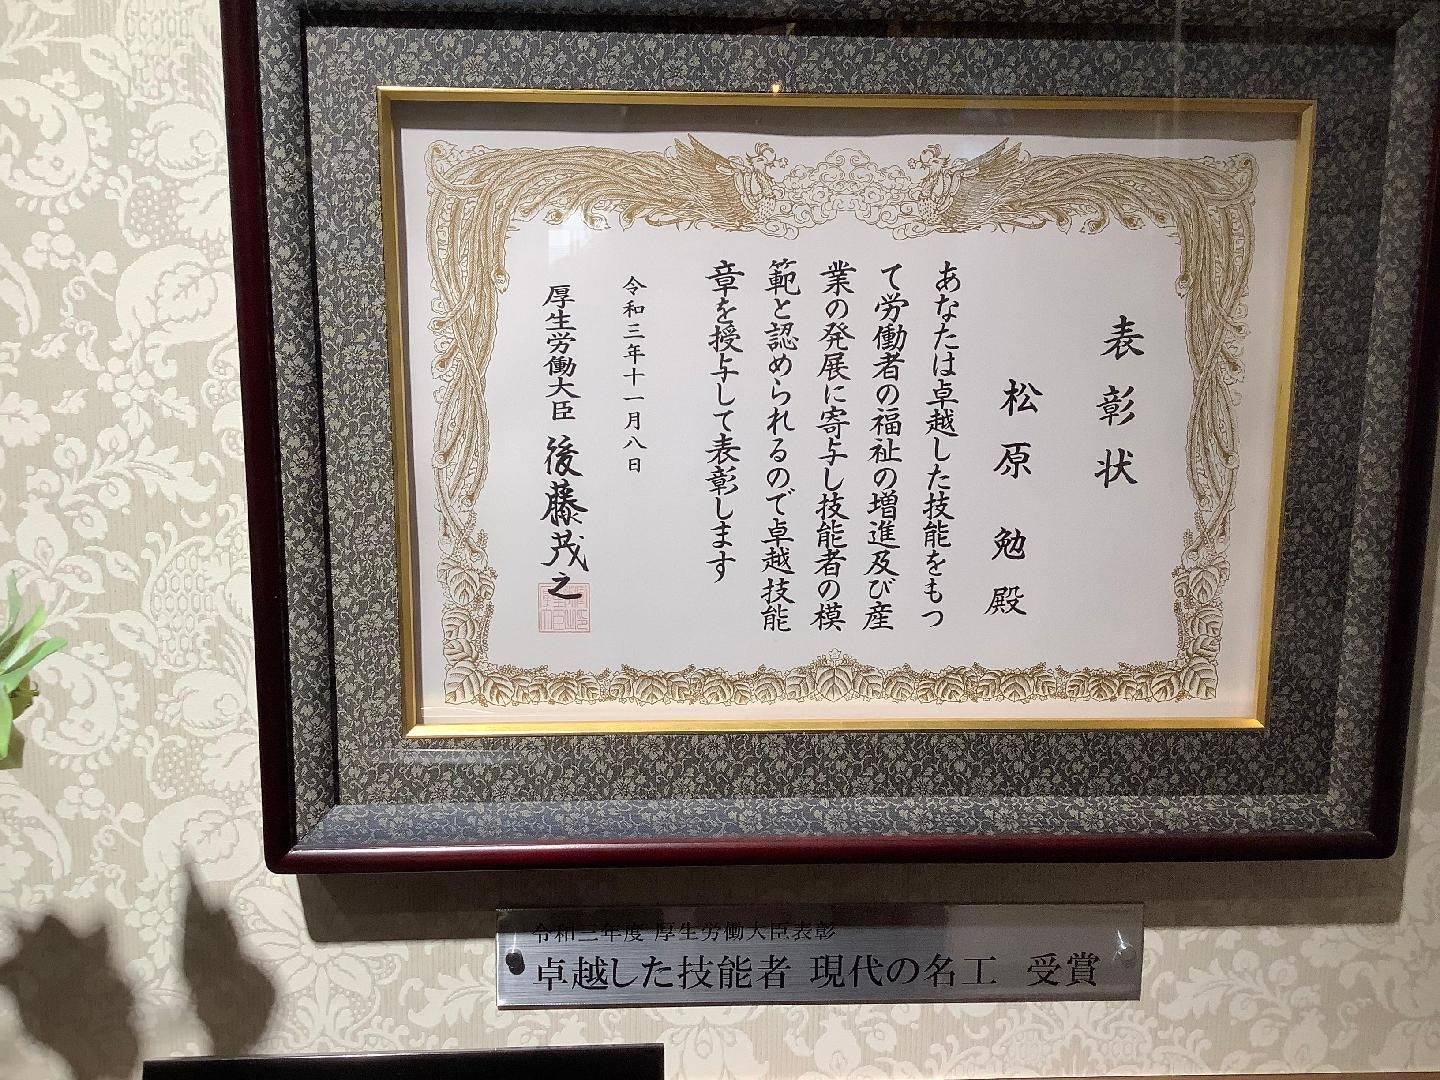 表彰状
松原 勉 殿
あなたは卓越した技能をもつ
て労働者の福祉の増進及び産
業の発展に寄与し技能者の模
範と認められるので卓越技能
章を授与して表彰します
令和三年十一月八日
厚生労働大臣 後藤茂之
令和三年度 厚生労働大臣表彰
卓越した技能者 現代の名工 受賞